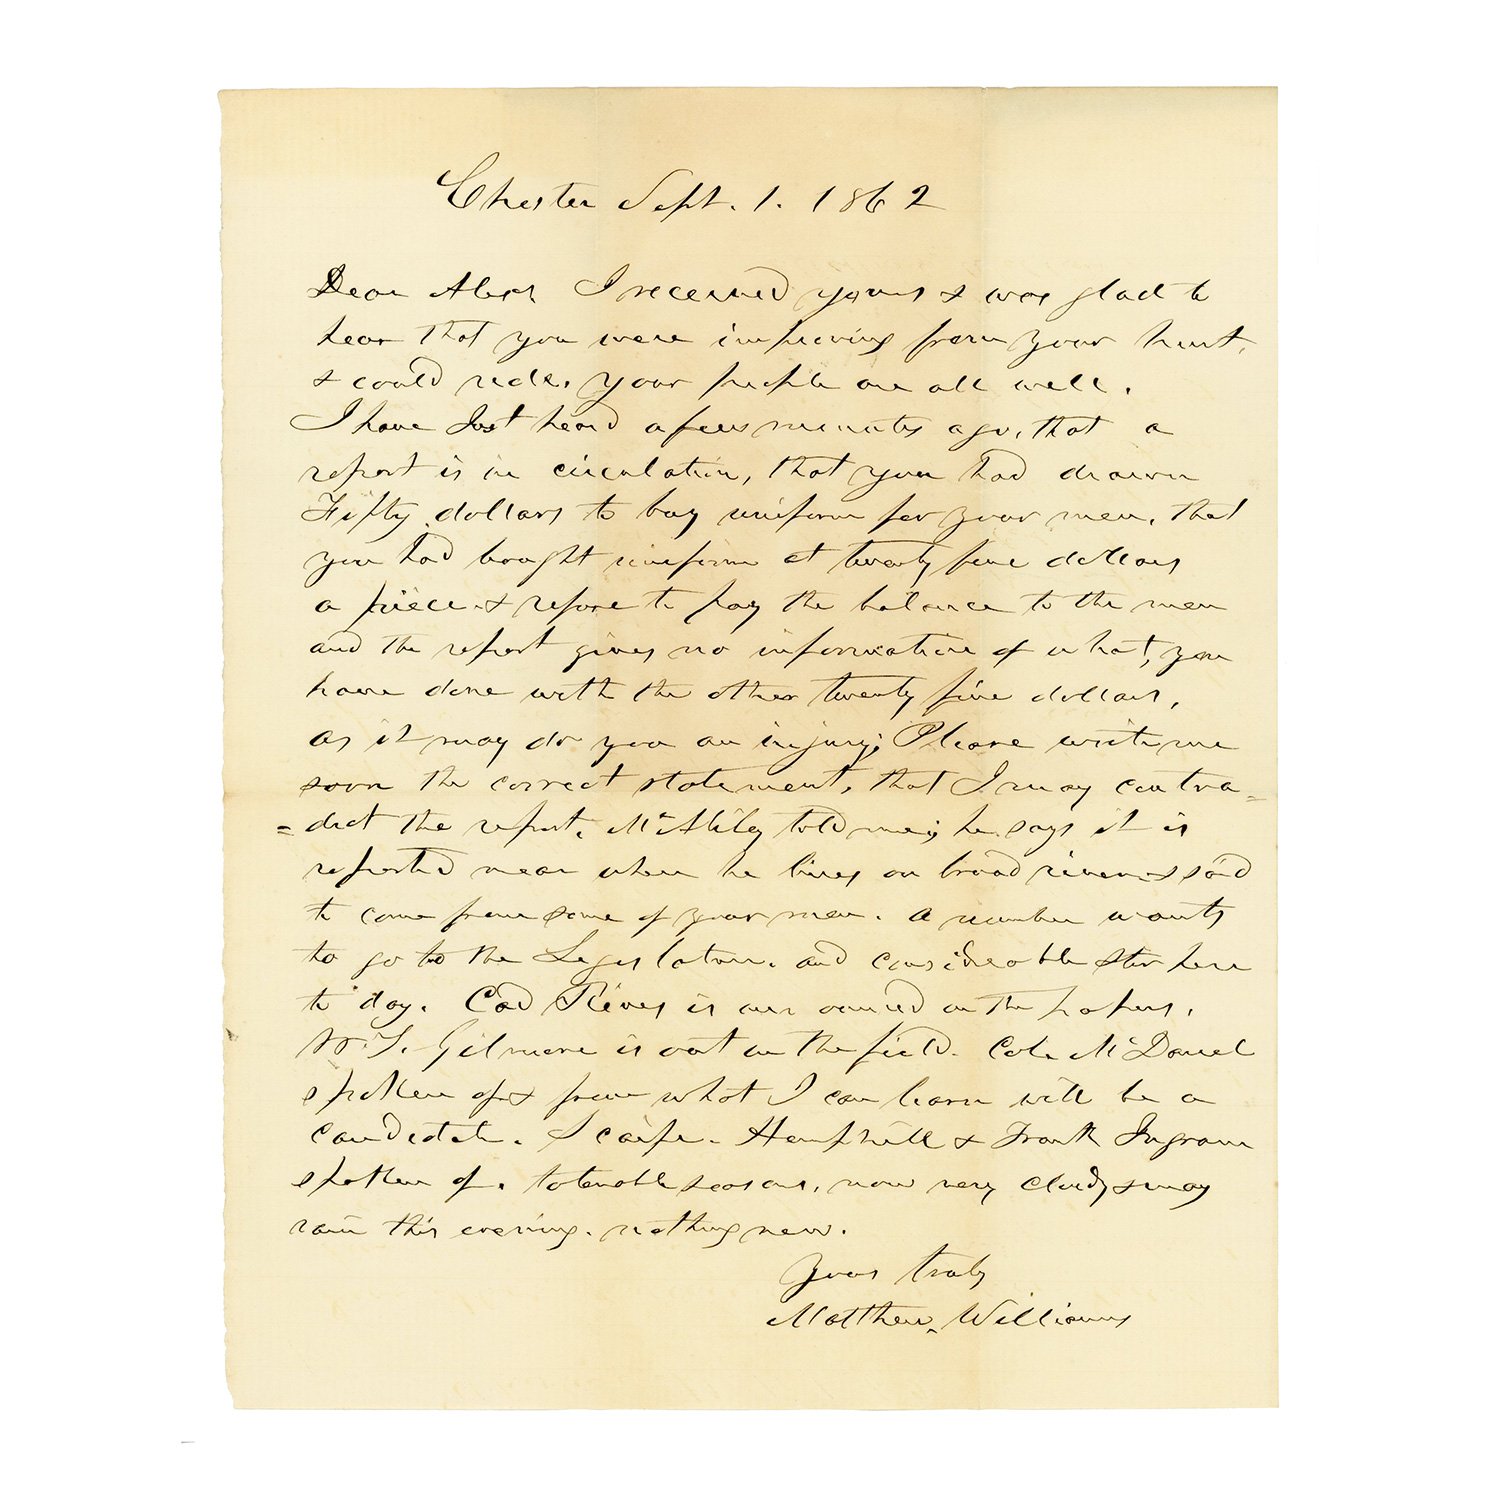 Chester Sept. 1. 1862
Dear Alexr I received yours & was glad to
hear that you were improving from your hurt,
& could ride. Your people are all well.
I have Just heard a few minutes ago, that a
report is in circulation, that you had drawn
Fifty dollars to buy uniform for your men, that
you had bought uniform at twenty five dollars
a piece & refuse to pay the balance to the men
and the report gives no information of what, you
have done with the other twenty five dollars,
as it may do you an injury; Please write me
soon the correct statement, that I may contra=
=dict the report. Mr told me; he says it is
reported near where he lives on broad river & said
to come from some of your men. a number wants
to go to the Legislature. and considerable stir here
to day. Cad Rives is announced in the papers,
W. T. Gilmore is out in the field. Col. McDaniel
spoken of & from what I can learn will be a
candidate. Scaife. Hemphill & Frank Ingram
spoken of. tolerable seasons, now very cloudy & may
rain this evening. nothing new.
Yours truly
Matthew Williams